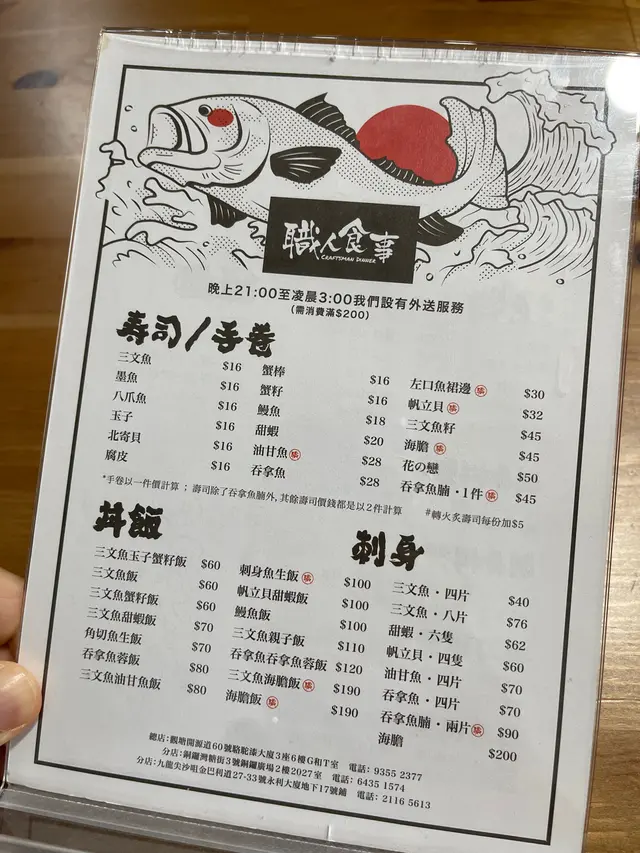 職人食事
CRAFTSMAN DINNER
晚上21:00至凌晨3:00我們設有外送服務
(需消費滿$200)
寿司/手卷
三文魚 $16
墨魚 $16
八爪魚 $16
玉子 $16
北寄貝 $16
腐皮 $16
蟹棒 $16
蟹籽 $16
鰻魚 $18
甜蝦 $20
油甘魚 $28
吞拿魚 $28
左口魚裙邊 $30
帆立貝 $32
三文魚籽 $45
海膽 $45
花の戀 $50
吞拿魚腩・1件 $45
*手卷以一件價計算；壽司除了吞拿魚腩外,其餘壽司價錢都是以2件計算 #轉火炙壽司每份加$5
丼飯
三文魚玉子蟹籽飯 $60
三文魚飯 $60
三文魚蟹籽飯 $60
三文魚甜蝦飯 $70
角切魚生飯 $70
吞拿魚蓉飯 $80
三文魚油甘魚飯 $80
刺身魚生飯 $100
帆立貝甜蝦飯 $100
鰻魚飯 $100
三文魚親子飯 $110
吞拿魚吞拿魚蓉飯 $120
三文魚海膽飯 $190
海膽飯 $190
刺身
三文魚・四片 $40
三文魚・八片 $76
甜蝦・六隻 $62
帆立貝・四隻 $60
油甘魚・四片 $70
吞拿魚・四片 $70
吞拿魚腩・兩片 $90
海膽 $200
總店：觀塘開源道60號駱駝漆大廈3座6樓G和T室 電話：9355 2377
分店：銅鑼灣糖街3號銅鑼廣場2樓2027室 電話：6435 1574
分店：九龍尖沙咀金巴利道27-33號永利大廈地下17號鋪 電話：2116 5613